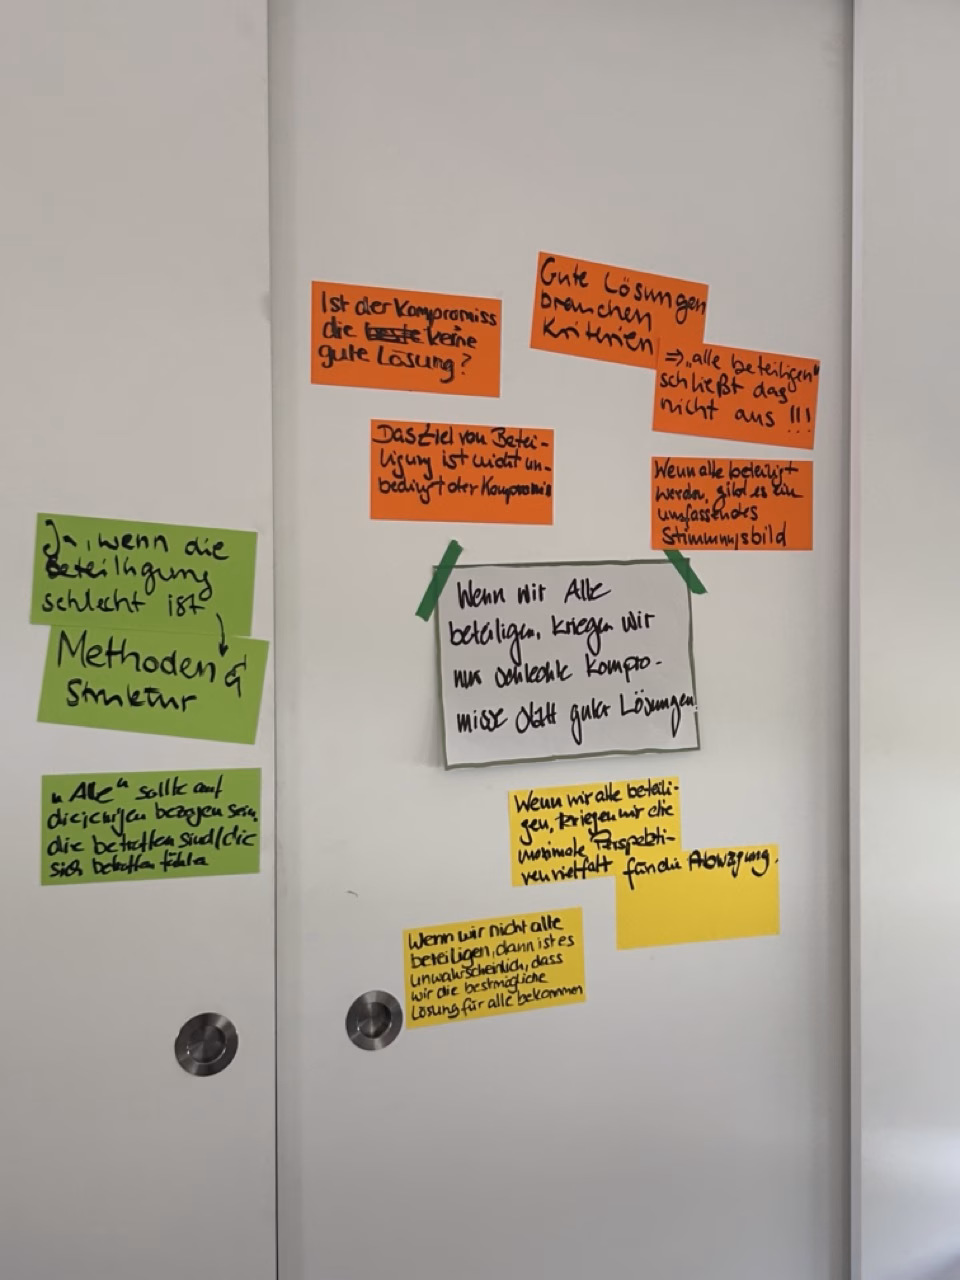 Ist der Kompromiss
die beste keine
gute Lösung?
Gute Lösungen
brauchen
Kriterien
=> „alle beteiligen"
schließt das
nicht aus !!!
Das Ziel von Betei-
ligung ist nicht un-
bedingt der Kompromiss
Wenn alle beteiligt
werden, gibt es ein
umfassendes
Stimmungsbild
Ja, wenn die
Beteiligung
schlecht ist
Methoden &
Struktur
„Alle" sollte auf
diejenigen bezogen sein,
die betroffen sind/die
sich betroffen fühlen
Wenn wir Alle
beteiligen, kriegen wir
nur schlechte Kompro-
misse statt guter Lösungen!
Wenn wir alle beteili-
gen, kriegen wir die
maximale Perspekti-
venvielfalt für die Abwägung.
Wenn wir nicht alle
beteiligen, dann ist es
unwahrscheinlich, dass
wir die bestmögliche
Lösung für alle bekommen